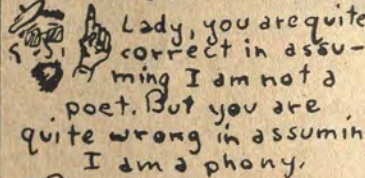 Lady, you are quite
correct in assu-
ming I am not a
poet. But you are
quite wrong in assumin
I am a phony.